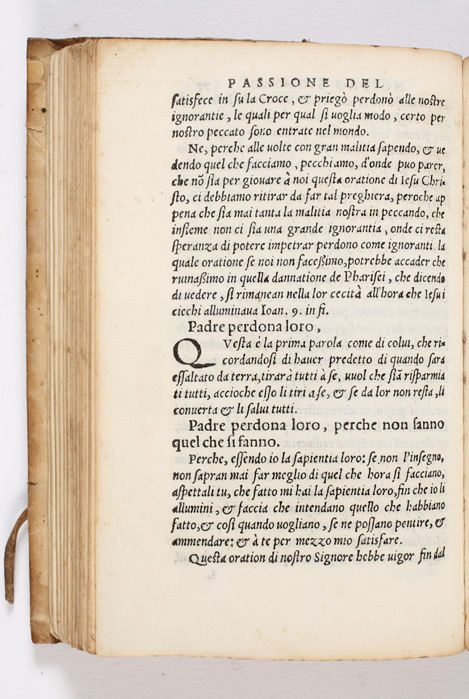 PASSIONE DEL
satisfece in su la Croce, & priegò perdonò alle nostre
ignorantie, le quali per qual si voglia modo, certo per
nostro peccato sono entrate nel mondo.
Ne, perche alle volte con gran malitia sapendo, & ue
dendo quel che facciamo, pecchiamo, d'onde puo parer,
che nõ sia per giovare à noi questa oratione di Iesu Chri-
sto, ci debbiamo ritirar da far tal preghiera, peroche ap
pena che sia mai tanta la malitia nostra in peccando, che
insieme non ci sia una grande ignorantia, onde ci resta
speranza di potere impetrar perdono come ignoranti. la
quale oratione se noi non facessimo, potrebbe accader che
ruinassimo in quella dannatione de Pharisei, che dicendo
di uedere, si rimanean nella lor cecità all'hora che Iesu i
ciechi alluminava Ioan. 9. in fi.
Padre perdona loro,
QVesta è la prima parola come di colui, che ri-
cordandosi di hauer predetto di quando sara
essaltato da terra, tirarà tutti à se, uuol che siã risparmia
ti tutti, accioche esso li tiri a se, & se da lor non resta, li
converta & li salui tutti.
Padre perdona loro, perche non sanno
quel che si fanno.
Perche, essendo io la sapientia loro: se non l'insegno,
non sapran mai far meglio di quel che hora si facciano,
aspettali tu, che fatto mi hai la sapientia loro, fin che io li
allumini, & faccia che intendano quello che habbiano
fatto, & così quando uogliano, se ne possano pentire, &
ammendare: & à te per mezzo mio satisfare.
Questa oration di nostro Signore hebbe uigor fin dal